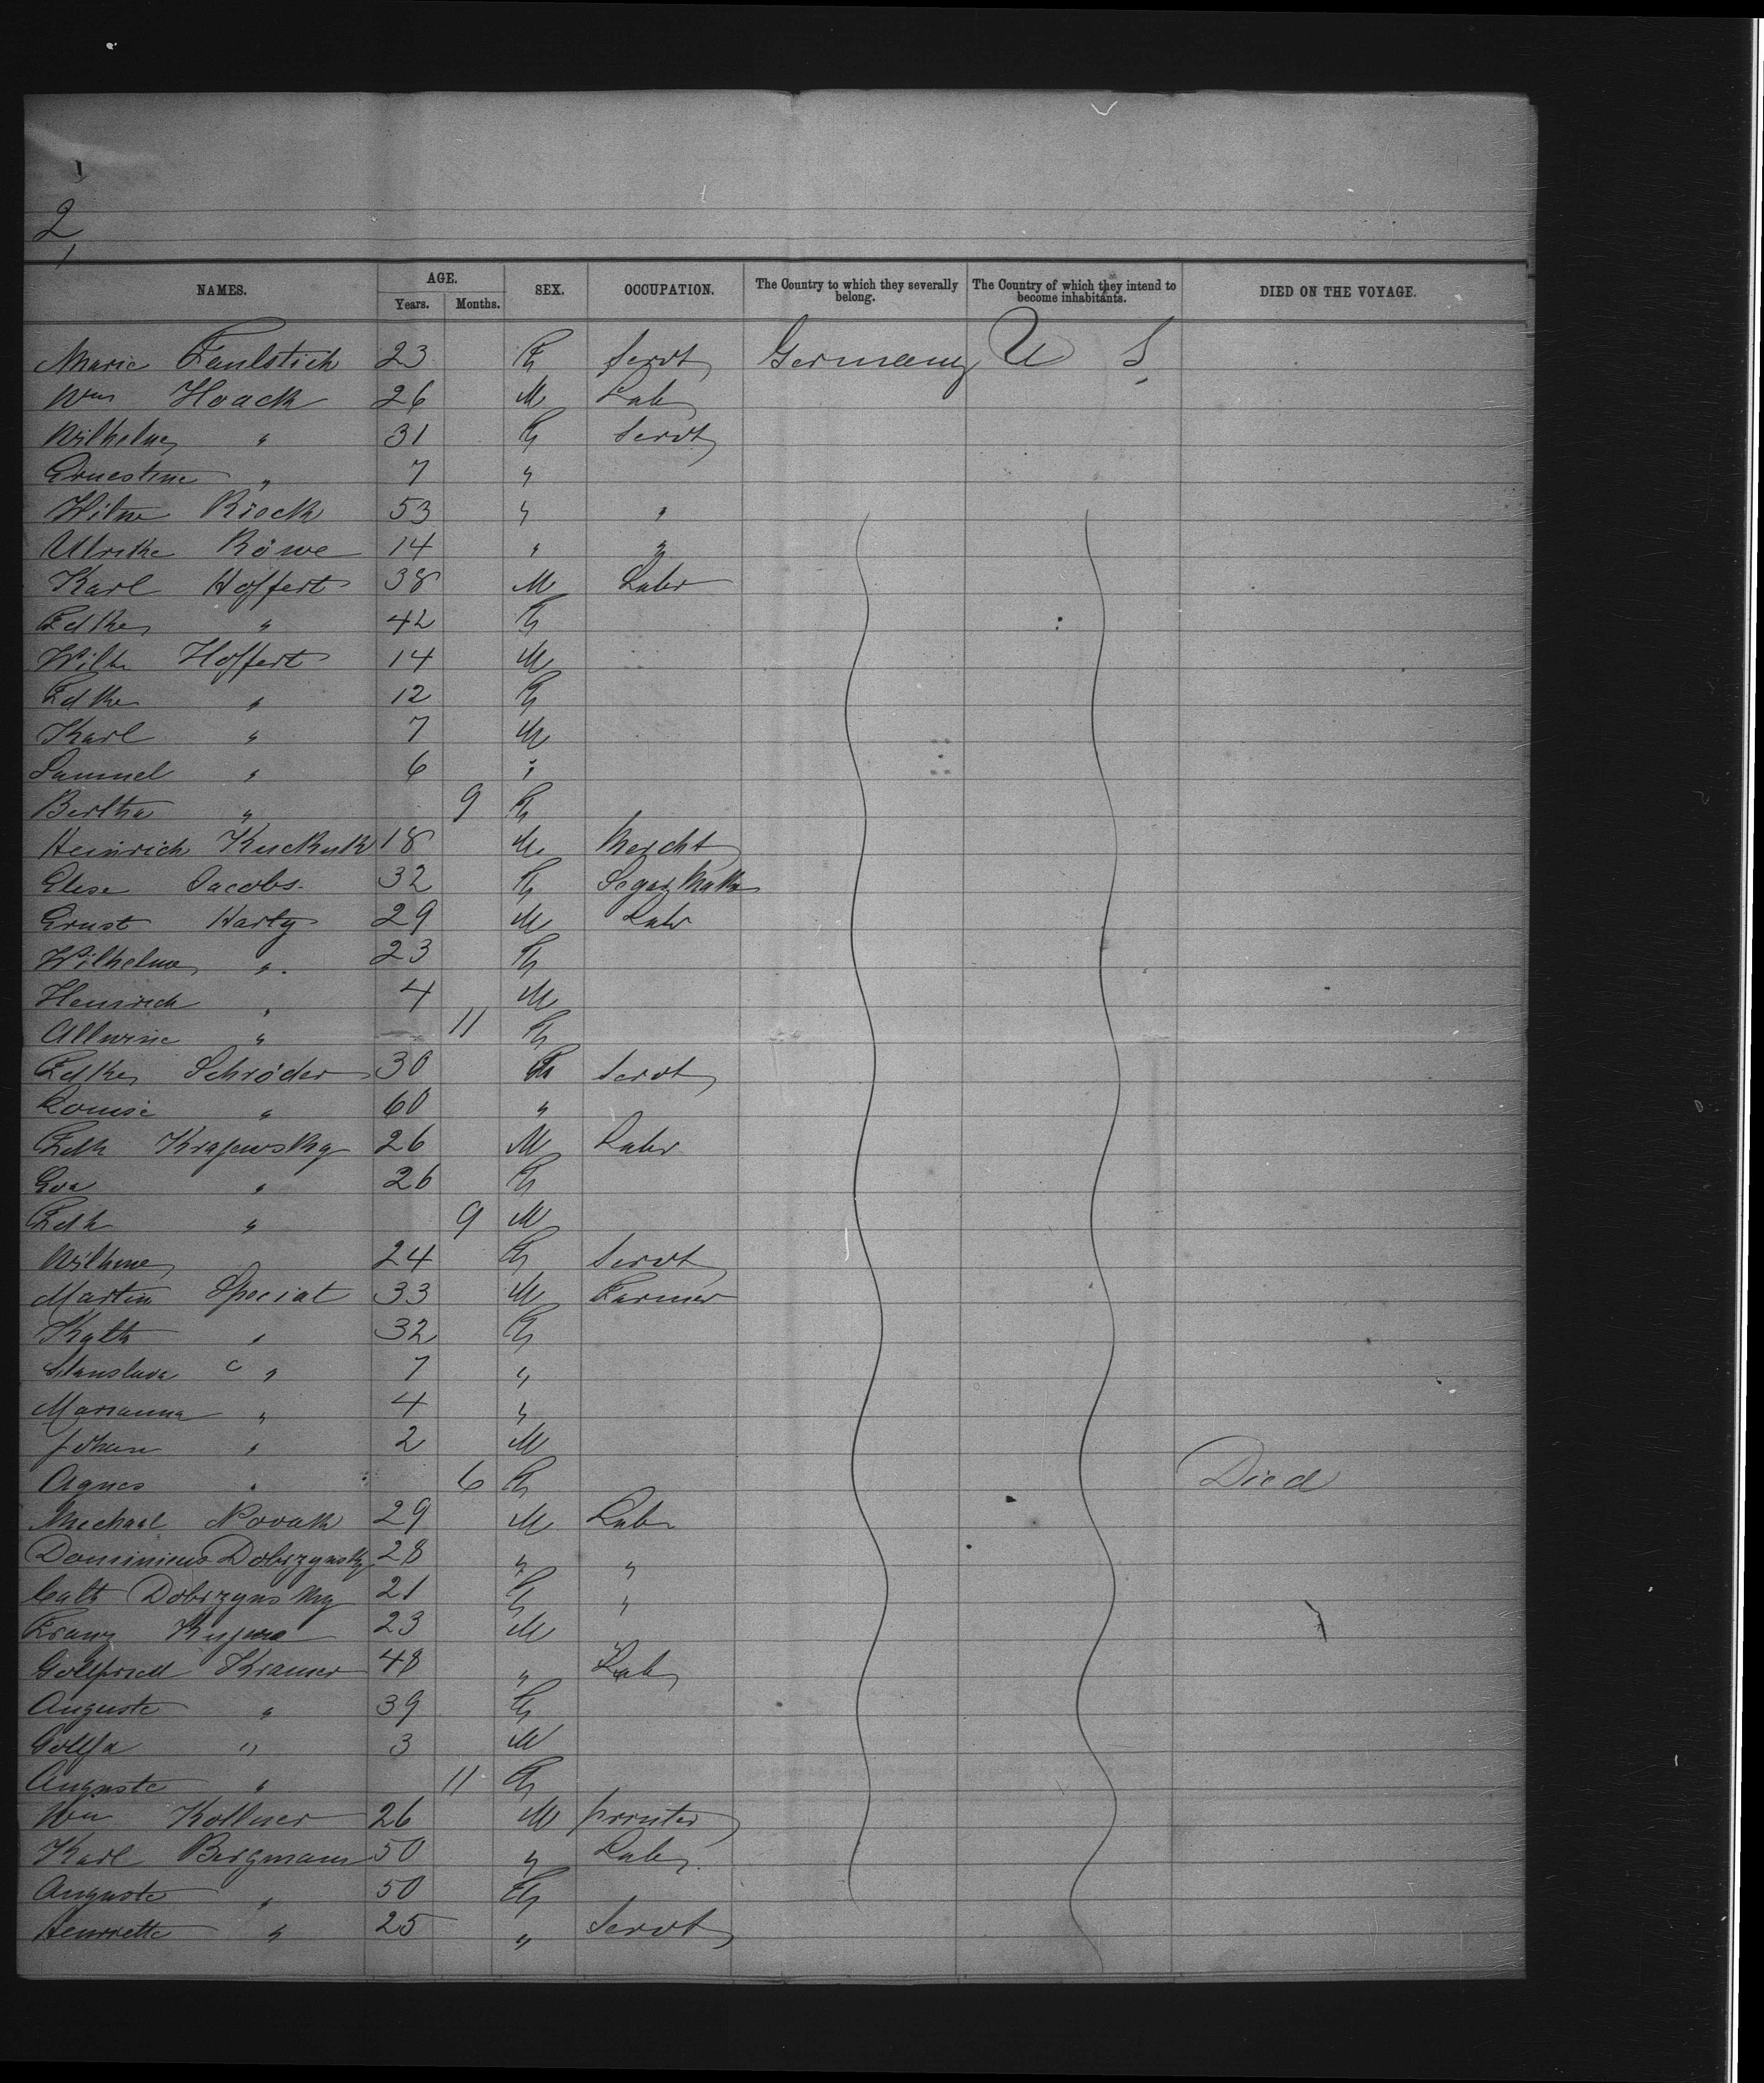 2
NAMES. AGE. Years. Months. SEX. OCCUPATION. The Country to which they severally belong. The Country of which they intend to become inhabitants. DIED ON THE VOYAGE.
Marie Faulstich 23 F Servt Germany U S
Wm Haack 26 M Labr
Wilhelm " 31 F Servt
Ernestine " 7 "
Wilme Rieck 53 " "
Ulrike Röwe 14 " "
Karl Hoffert 38 M Labr
Fdke " 42 F
Wilh Hoffert 14 M
Fdke " 12 F
Karl " 7 M
Samuel " 6 "
Bertha " 9 F
Heinrich Kuckuk 18 M Mercht
Elise Jacobs 32 F Segar Makr
Ernst Harty 29 M Labr
Wilhelma " 23 F
Heinrich " 4 M
Allwine " 11 F
Fdke Schröder 30 F Servt
Louise " 60 "
Fdk Krajewsky 26 M Labr
Eva " 26 F
Fdk " 9 M
Wilhme 24 F Servt
Martin Speciat 33 M Farmer
Kath " 32 F
Stanslava " 7 "
Marianna " 4 "
Johan " 2 M
Agnes " 6 F Died
Michael Novak 29 M Labr
Dominicus Dobrzynsky 28 " "
Cath Dobrzynsky 21 F "
Franz 23 M
Gottfried Kramer 48 " Labr
Auguste " 39 F
3 M
Auguste " 11 F
Wm Kollner 26 M printer
Karl Bergmann 50 " Labr
Auguste " 50 F
Henriette " 25 " Servt